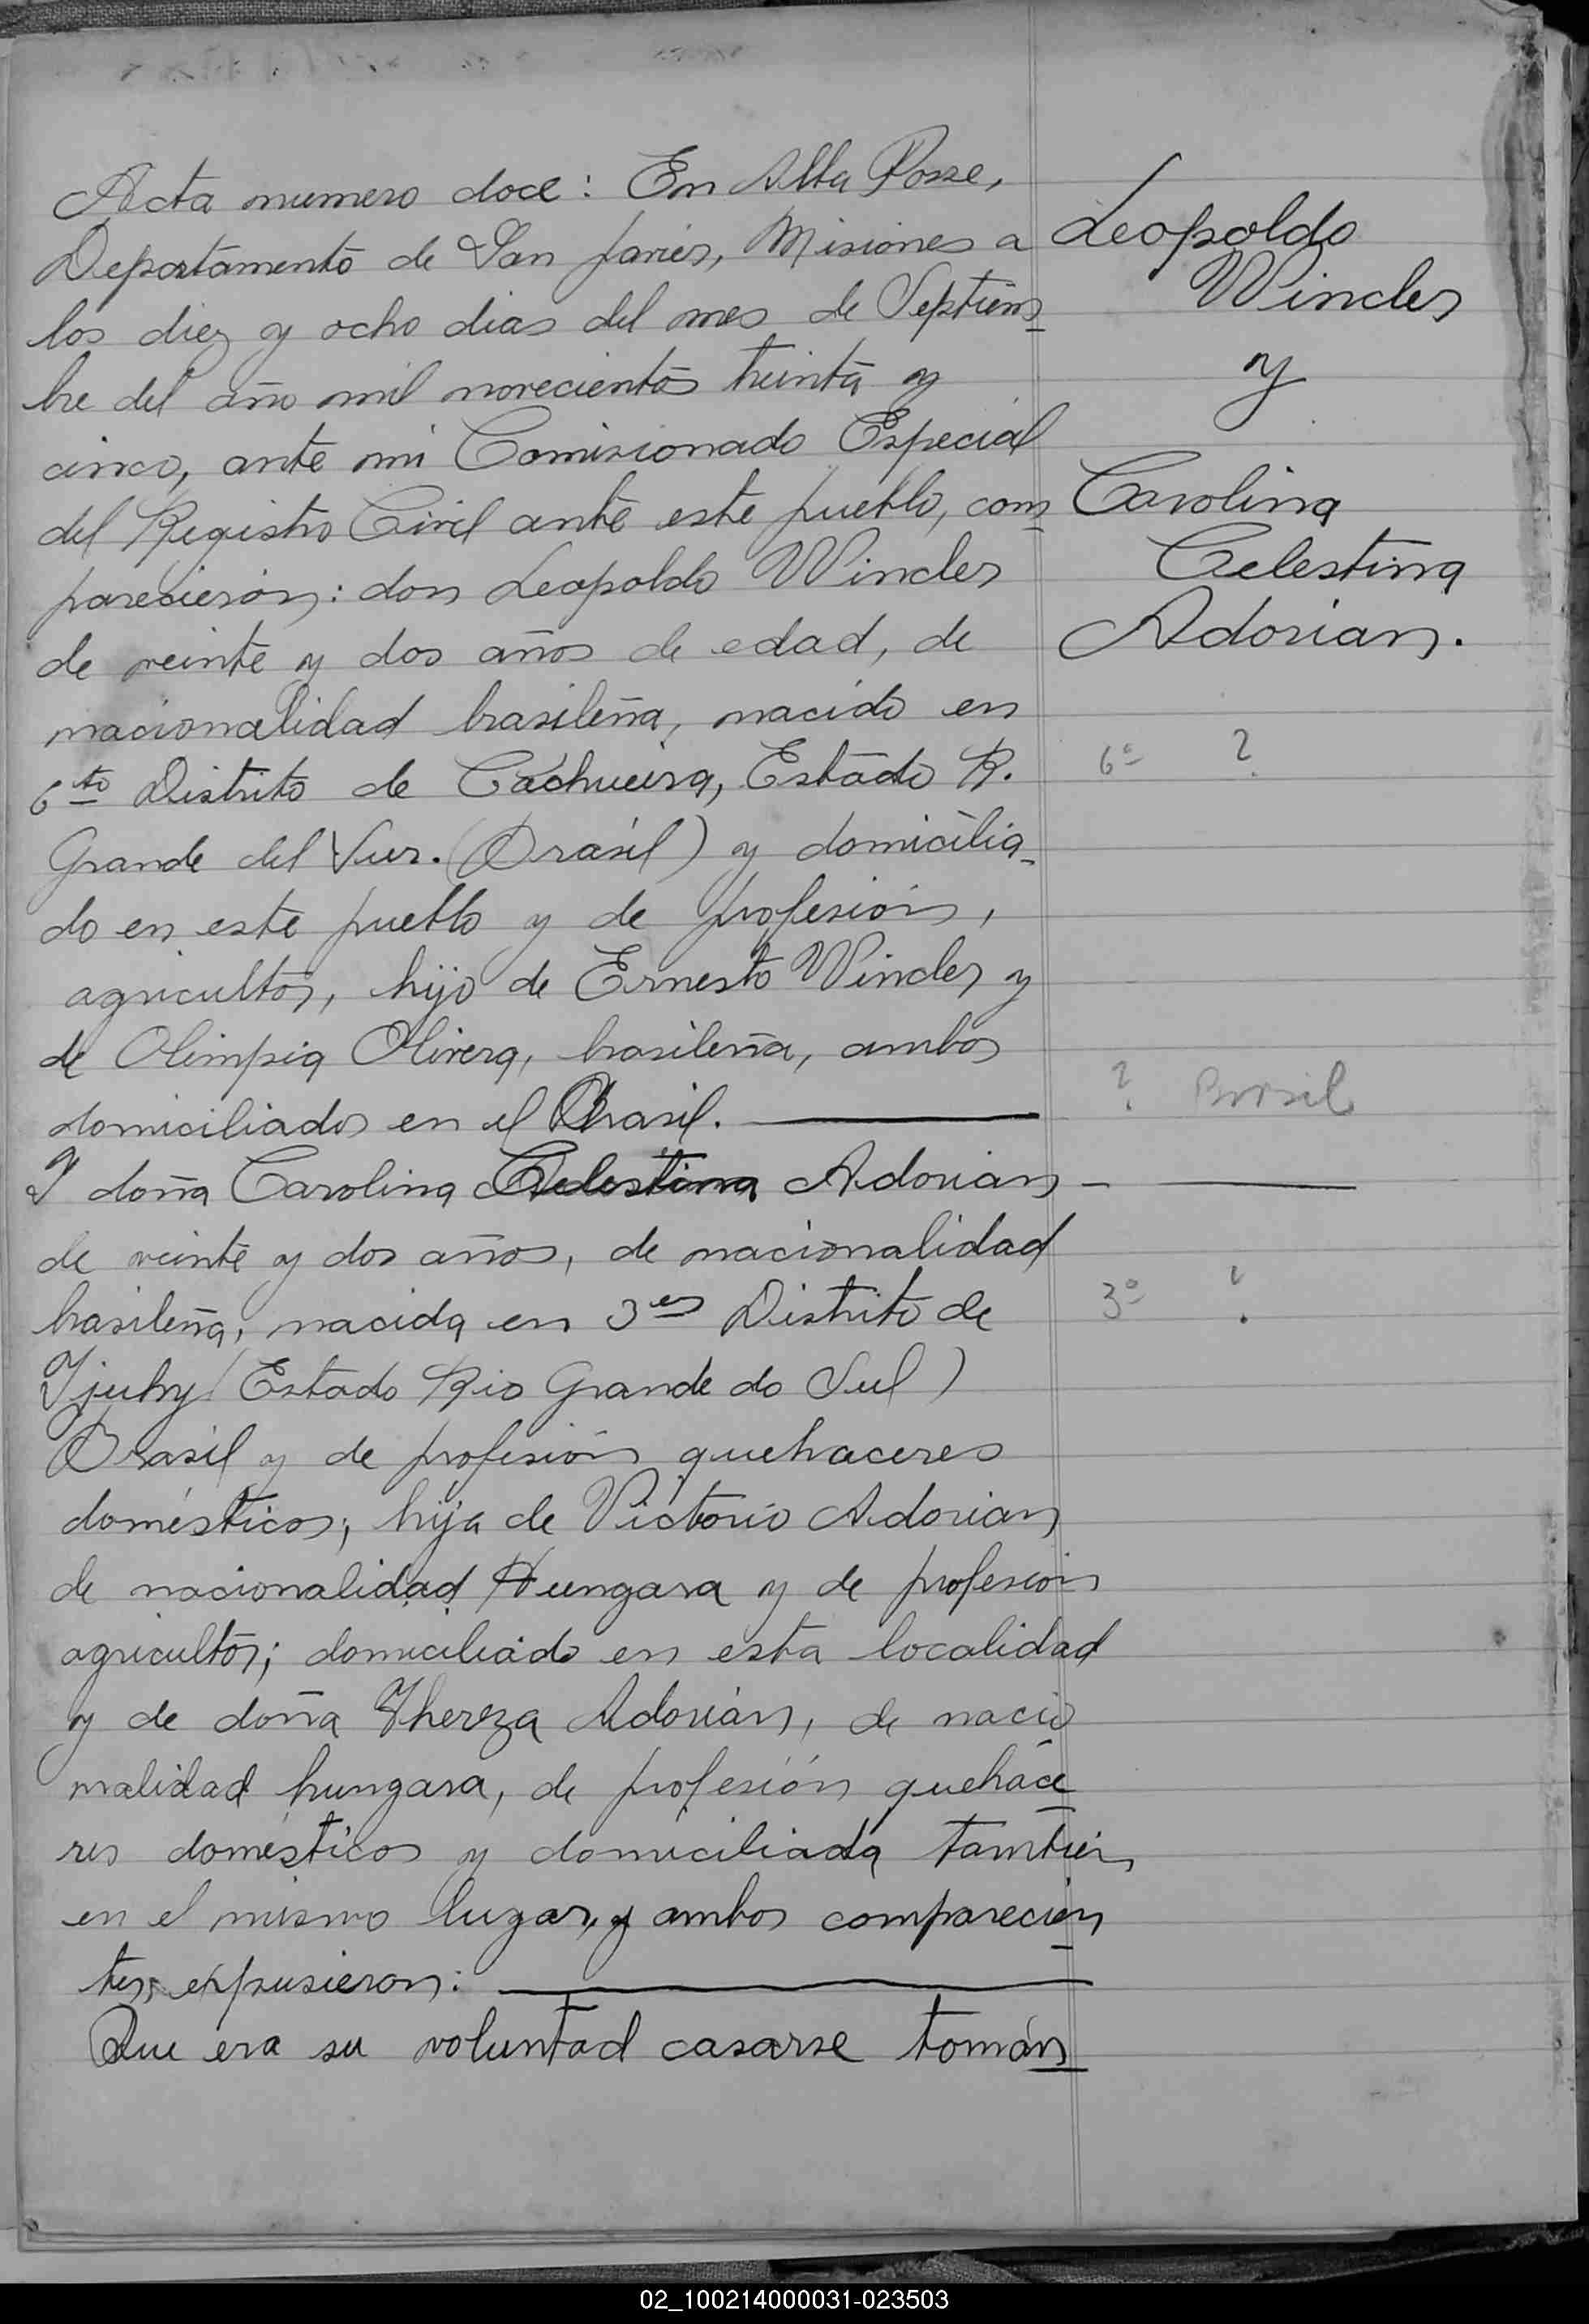 Acta numero doce: En Alba Posse,
Departamento de San Javier, Misiones a
los diez y ocho dias del mes de Septiem
bre del año mil novecientos treinta y
cinco, ante mi Comisionado Especial
del Registro Civil ante este pueblo, com
parecieron: don Leopoldo Wincler
de veinte y dos años de edad, de
nacionalidad brasileña, nacido en
6to Distrito de Cachueira, Estado R.
Grande del Sur. (Brasil) y domicilia-
do en este pueblo y de profesión,
agricultor, hijo de Ernesto Wincler y
de Olimpia Olivera, brasileña, ambos
domiciliados en el Brasil.
Y doña Carolina Celestina Adorian
de veinte y dos años, de nacionalidad
brasileña, nacida en 3er Distrito de
Yjuhy (Estado Rio Grande do Sul)
Brasil y de profesión quehaceres
domésticos; hija de Victorio Adorian
de nacionalidad Hungara y de profesion
agricultor; domiciliado en esta localidad
y de doña Thereza Adorián, de nacio
nalidad hungara, de profesión quehace
res domésticos y domiciliada también
en el mismo lugar, y ambos comparecien
tes, expusieron:
Que era su voluntad casarse tomán
Leopoldo
Wincler
y
Carolina
Celestina
Adorian.
6º ?
? Brasil
3º ?
02_100214000031-023503